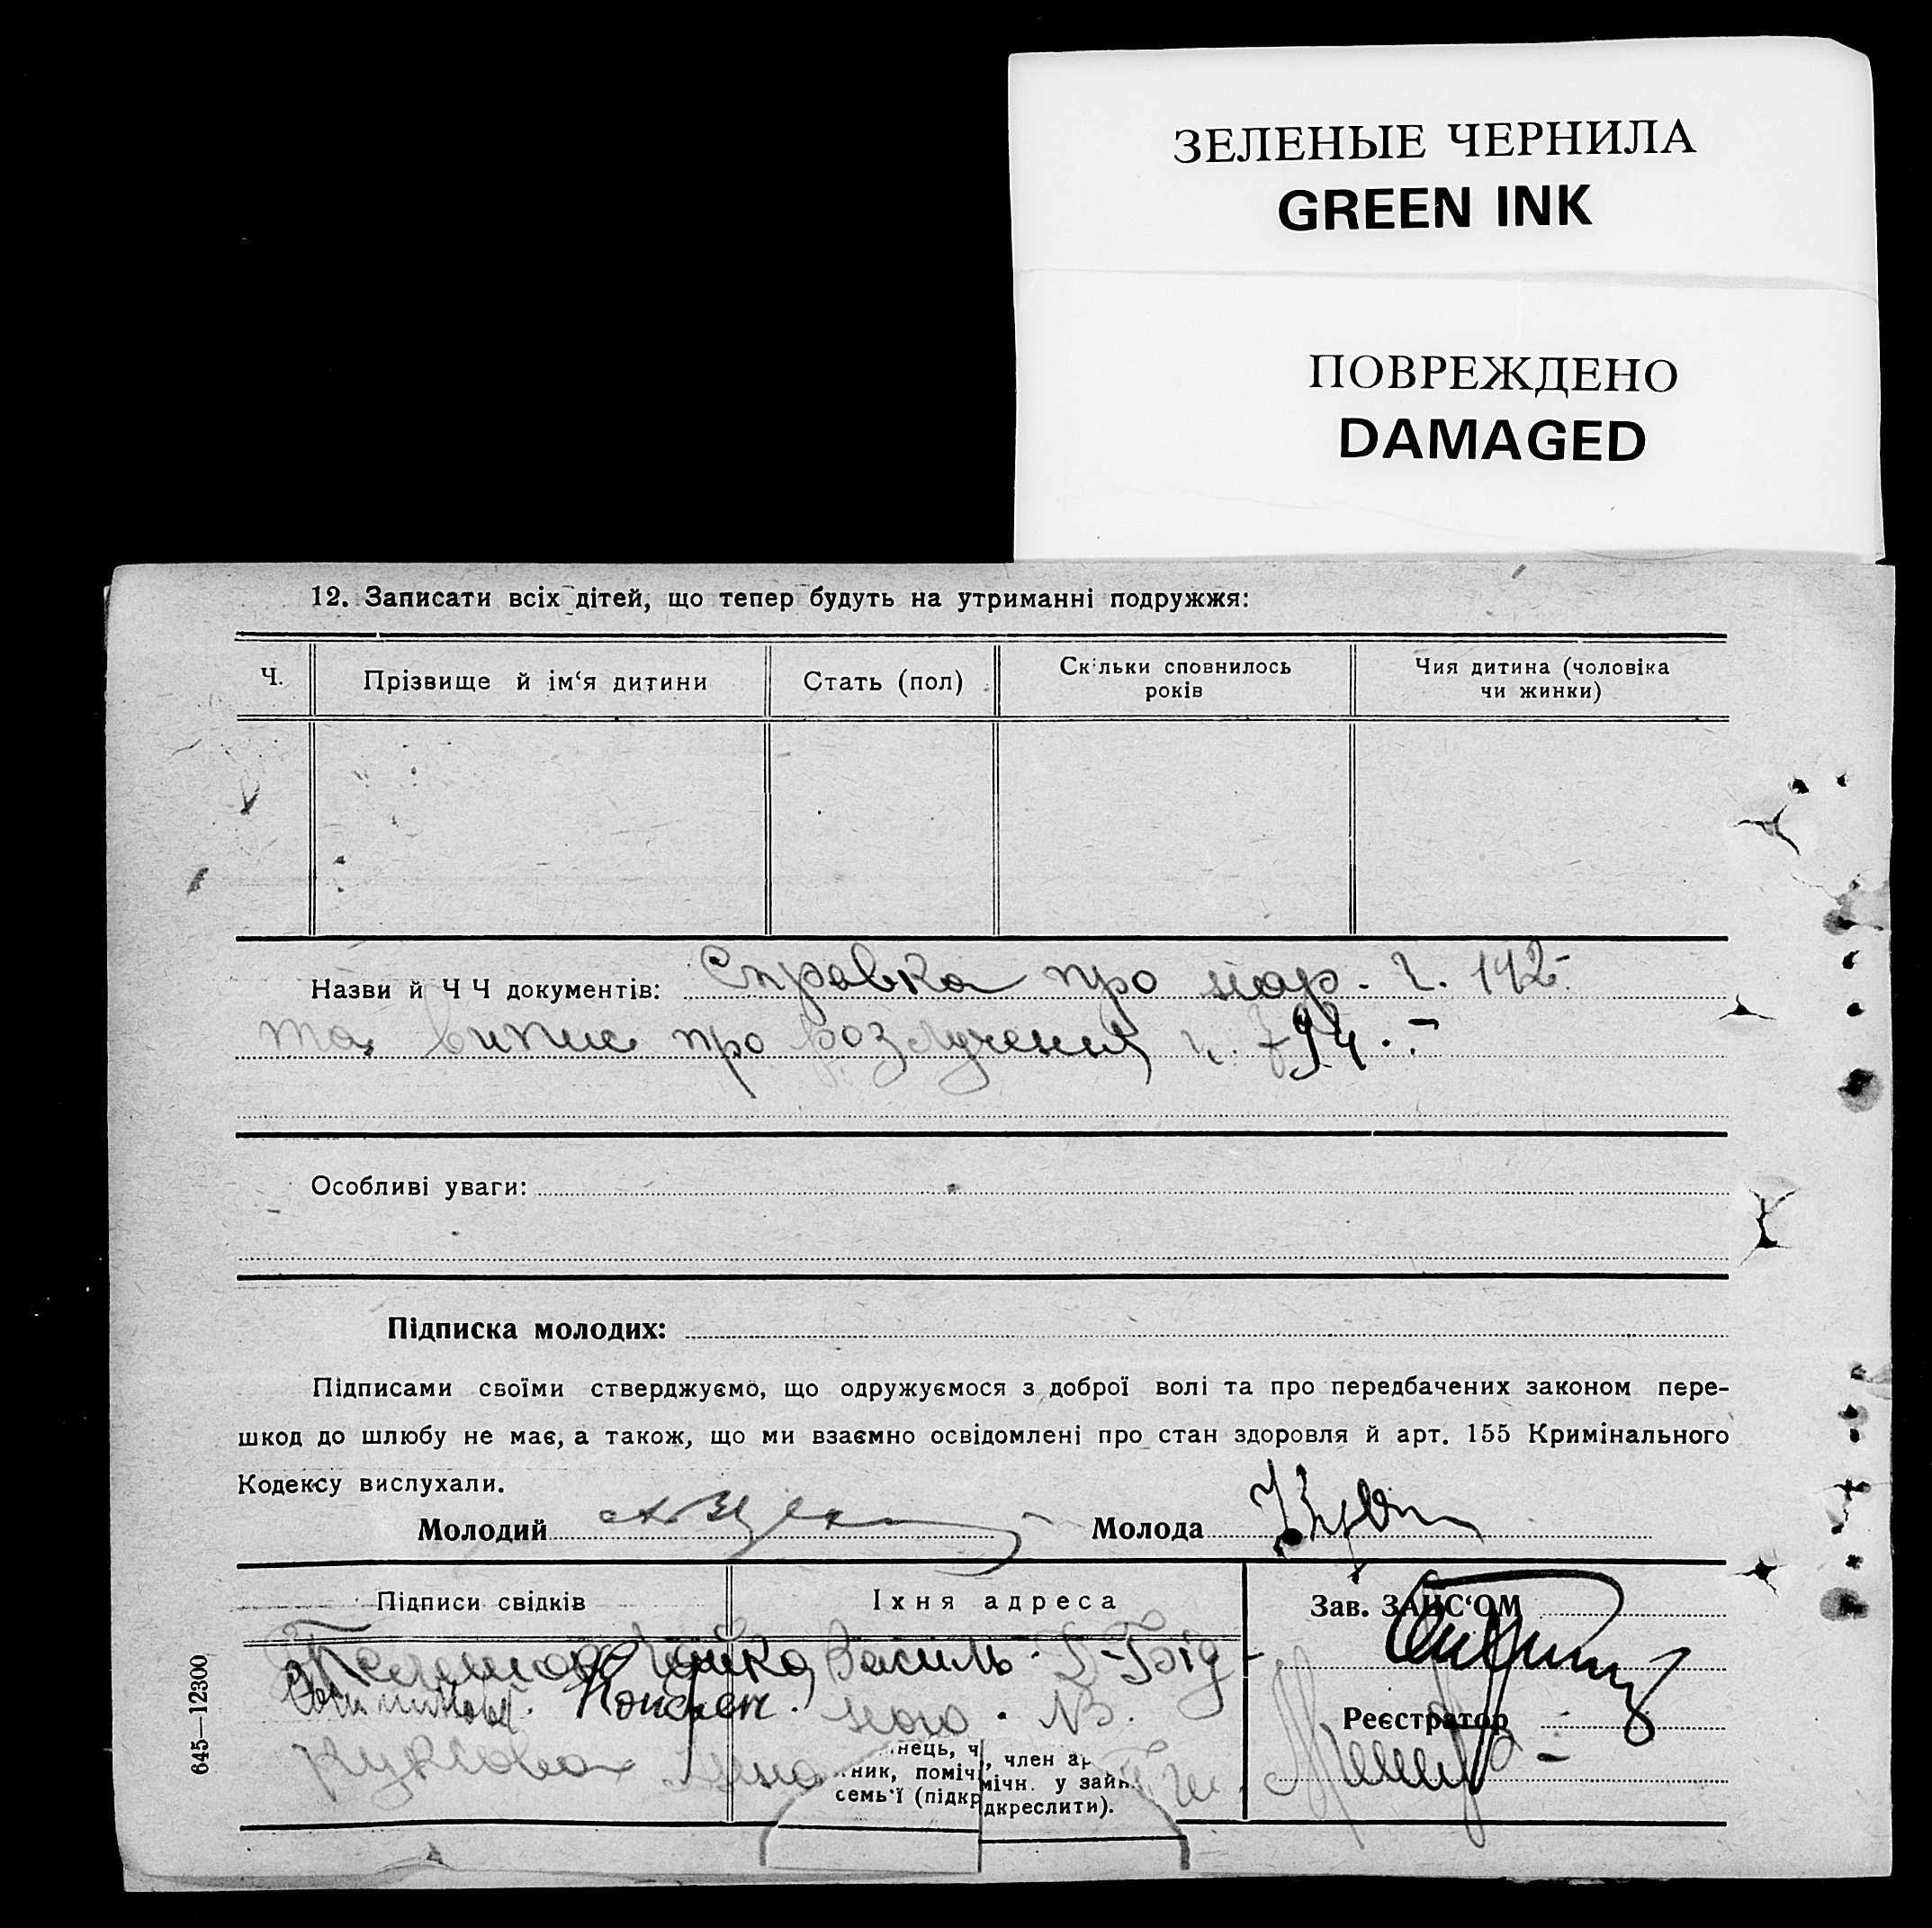 ЗЕЛЕНЫЕ ЧЕРНИЛА
GREEN INK
ПОВРЕЖДЕНО
DAMAGED
12. Записати всіх дітей, що тепер будуть на утриманні подружжя:
Ч. Прізвище й ім‘я дитини Стать (пол) Скільки сповнилось років Чия дитина (чоловіка чи жинки)
Назви й Ч Ч документів: Справка про нар. ч. 142-
та випис про розлучення ч. 794.-
Особливі уваги:
Підписка молодих:
Підписами своїми стверджуємо, що одружуємося з доброї волі та про передбачених законом пере-
шкод до шлюбу не має, а також, що ми взаємно освідомлені про стан здоровля й арт. 155 Кримінального
Кодексу вислухали.
Молодий Молода
Підписи свідків Їхня адреса Зав. ЗАГС‘ОМ
Чайка Василь
Реєстратор
нець, ч, член ар
ник, поміч мічн. у зайн
семь‘ї (підкр дкреслити).
645—12300